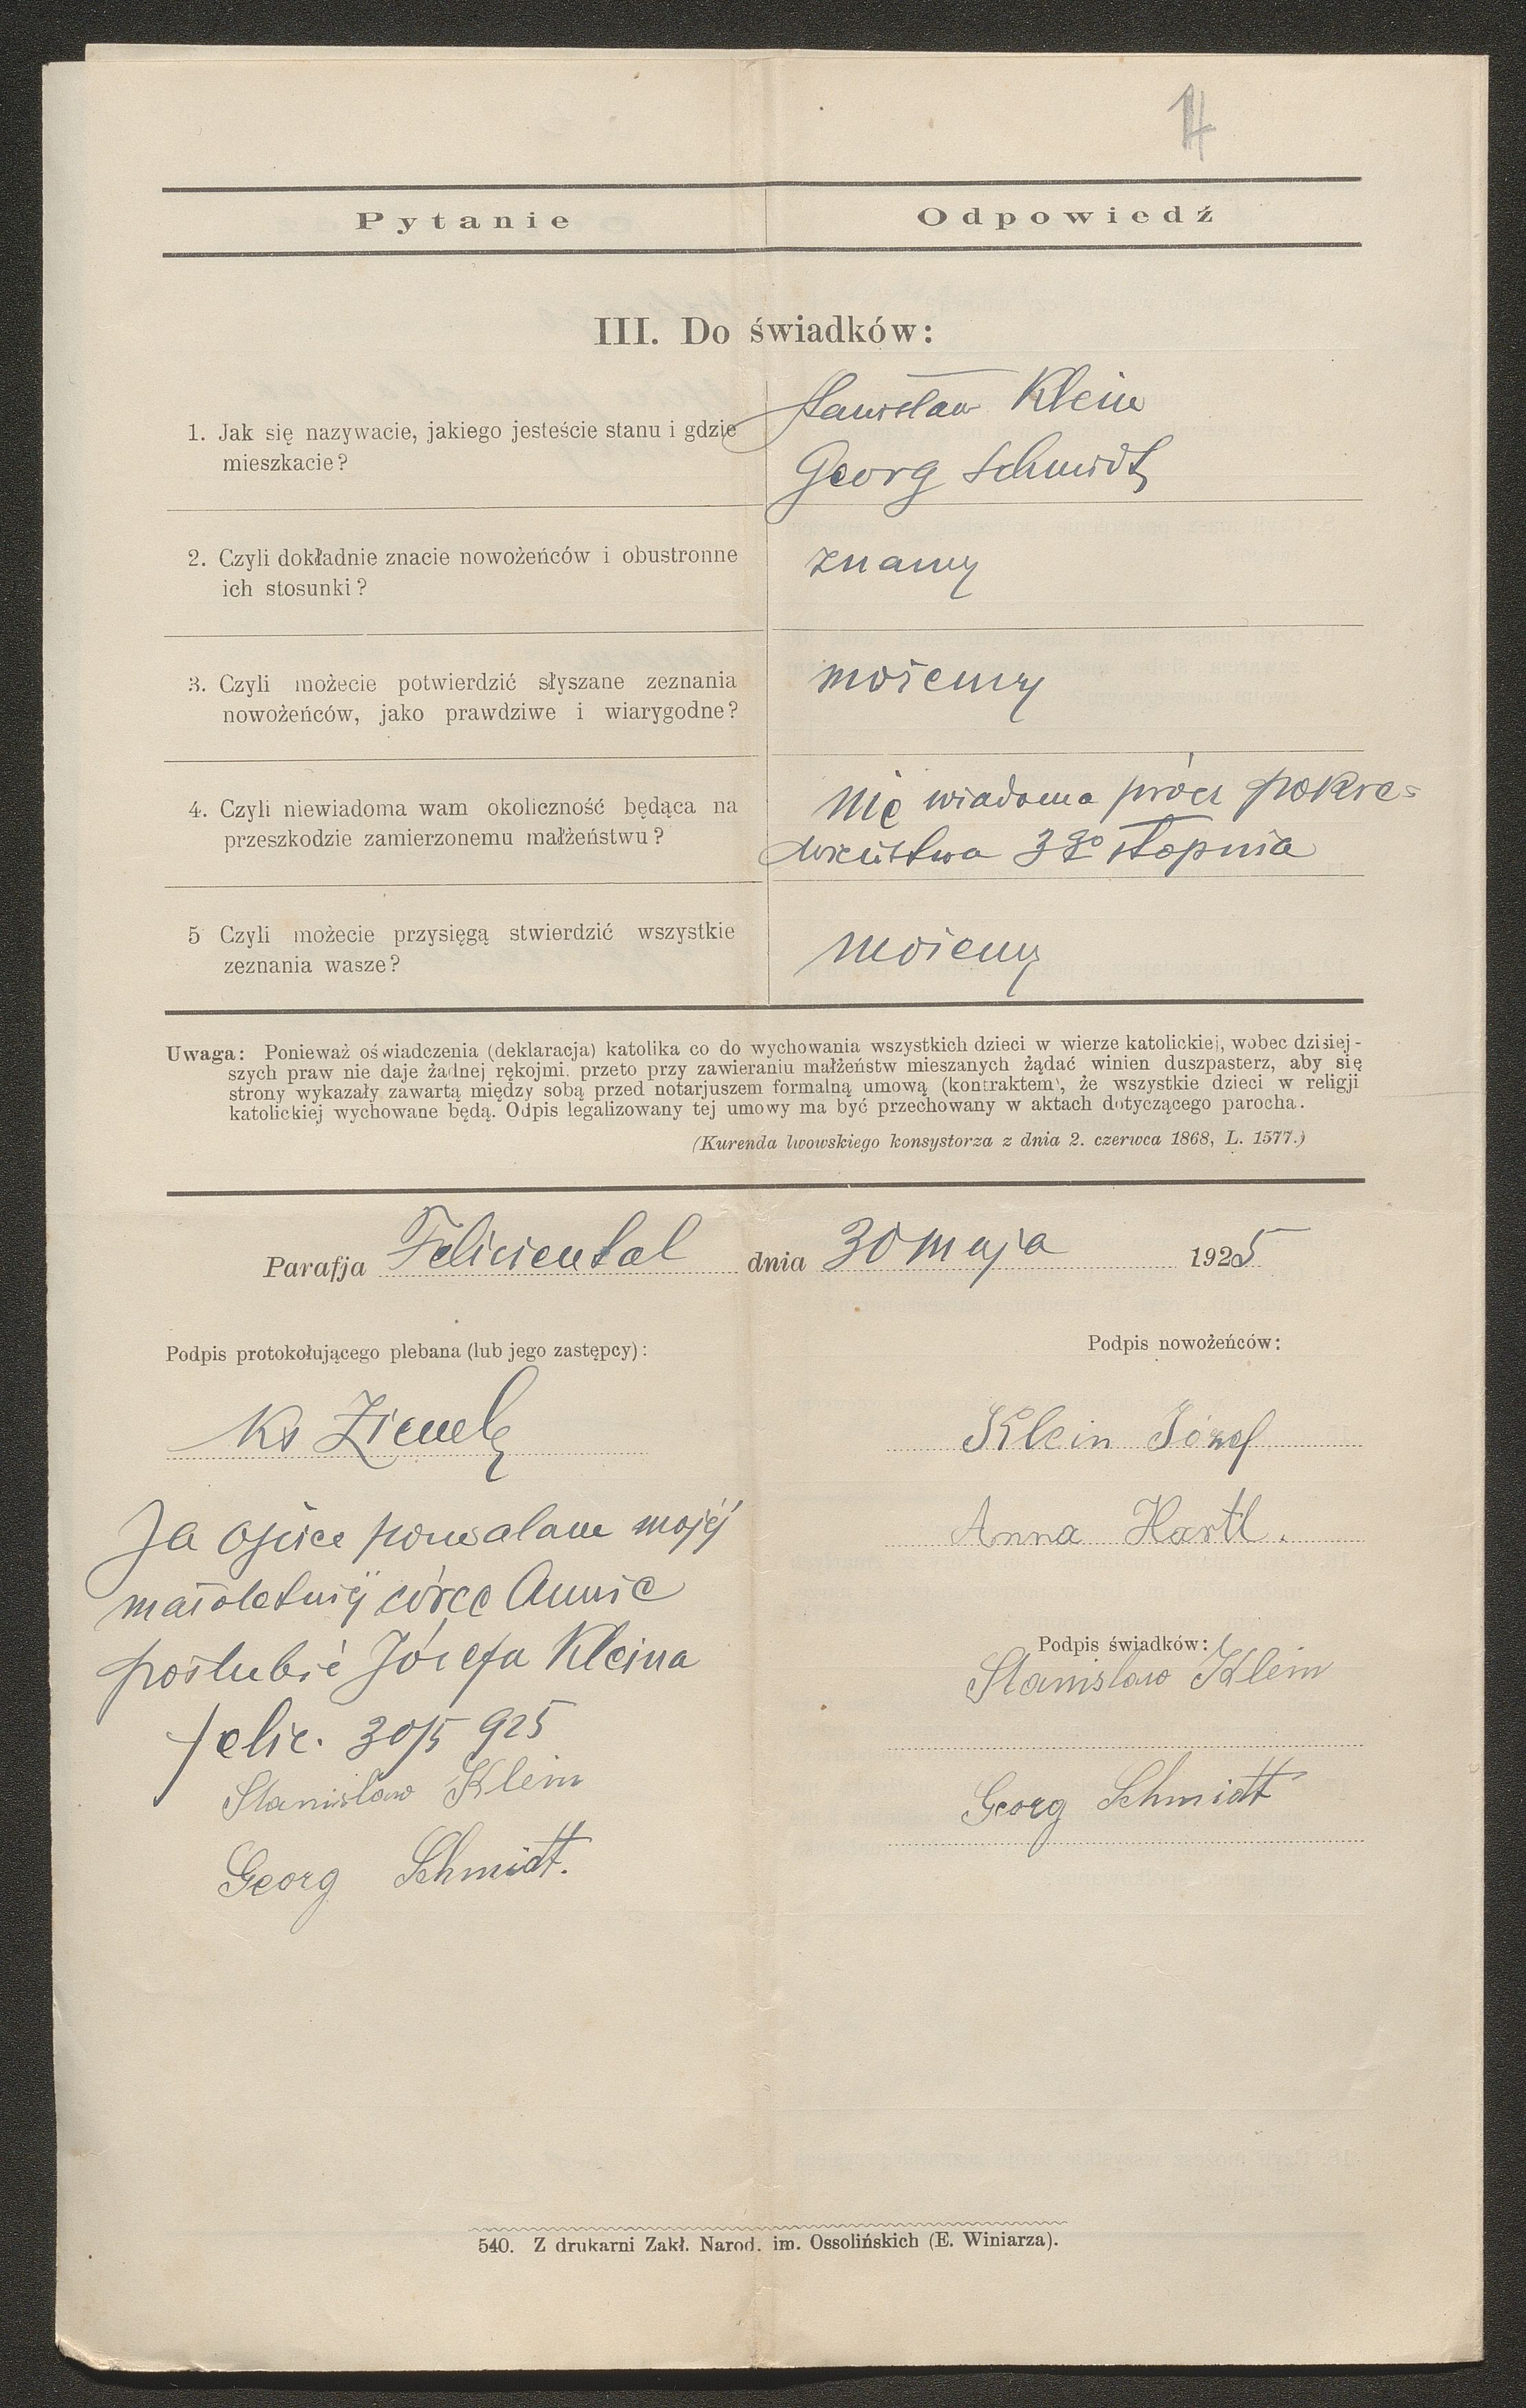 Pytanie Odpowiedź
III. Do świadków:
1. Jak się nazywacie, jakiego jesteście stanu i gdzie
mieszkacie?
Stanisław Klein
Georg Schmidt
2. Czyli dokładnie znacie nowożeńców i obustronne
ich stosunki?
znamy
3. Czyli możecie potwierdzić słyszane zeznania
nowożeńców, jako prawdziwe i wiarygodne?
możemy
4. Czyli niewiadoma wam okoliczność będąca na
przeszkodzie zamierzonemu małżeństwu?
Nie wiadoma prócz pokre-
wieństwa 3go stopnia
5 Czyli możecie przysięgą stwierdzić wszystkie
zeznania wasze?
możemy
Uwaga: Ponieważ oświadczenia (deklaracja) katolika co do wychowania wszystkich dzieci w wierze katolickiej, wobec dzisiej-
szych praw nie daje żadnej rękojmi. przeto przy zawieraniu małżeństw mieszanych żądać winien duszpasterz, aby się
strony wykazały zawartą między sobą przed notarjuszem formalną umową (kontraktem), że wszystkie dzieci w religji
katolickiej wychowane będą. Odpis legalizowany tej umowy ma być przechowany w aktach dotyczącego parocha.
(Kurenda lwowskiego konsystorza z dnia 2. czerwca 1868, L. 1577.)
Parafja Felicientał dnia 30 maja 1925
Podpis protokołującego plebana (lub jego zastępcy):
Podpis nowożeńców:
Ks
Klein Józef
Anna Hartl.
Ja ojciec pozwalam mojéj
małoletniéj córce Annie
poślubić Józefa Kleina
Felic. 30/5 925
Stanisław Klein
Georg Schmidt.
Podpis świadków:
Stanisław Klein
Georg Schmidt
540. Z drukarni Zakł. Narod. im. Ossolińskich (E. Winiarza).